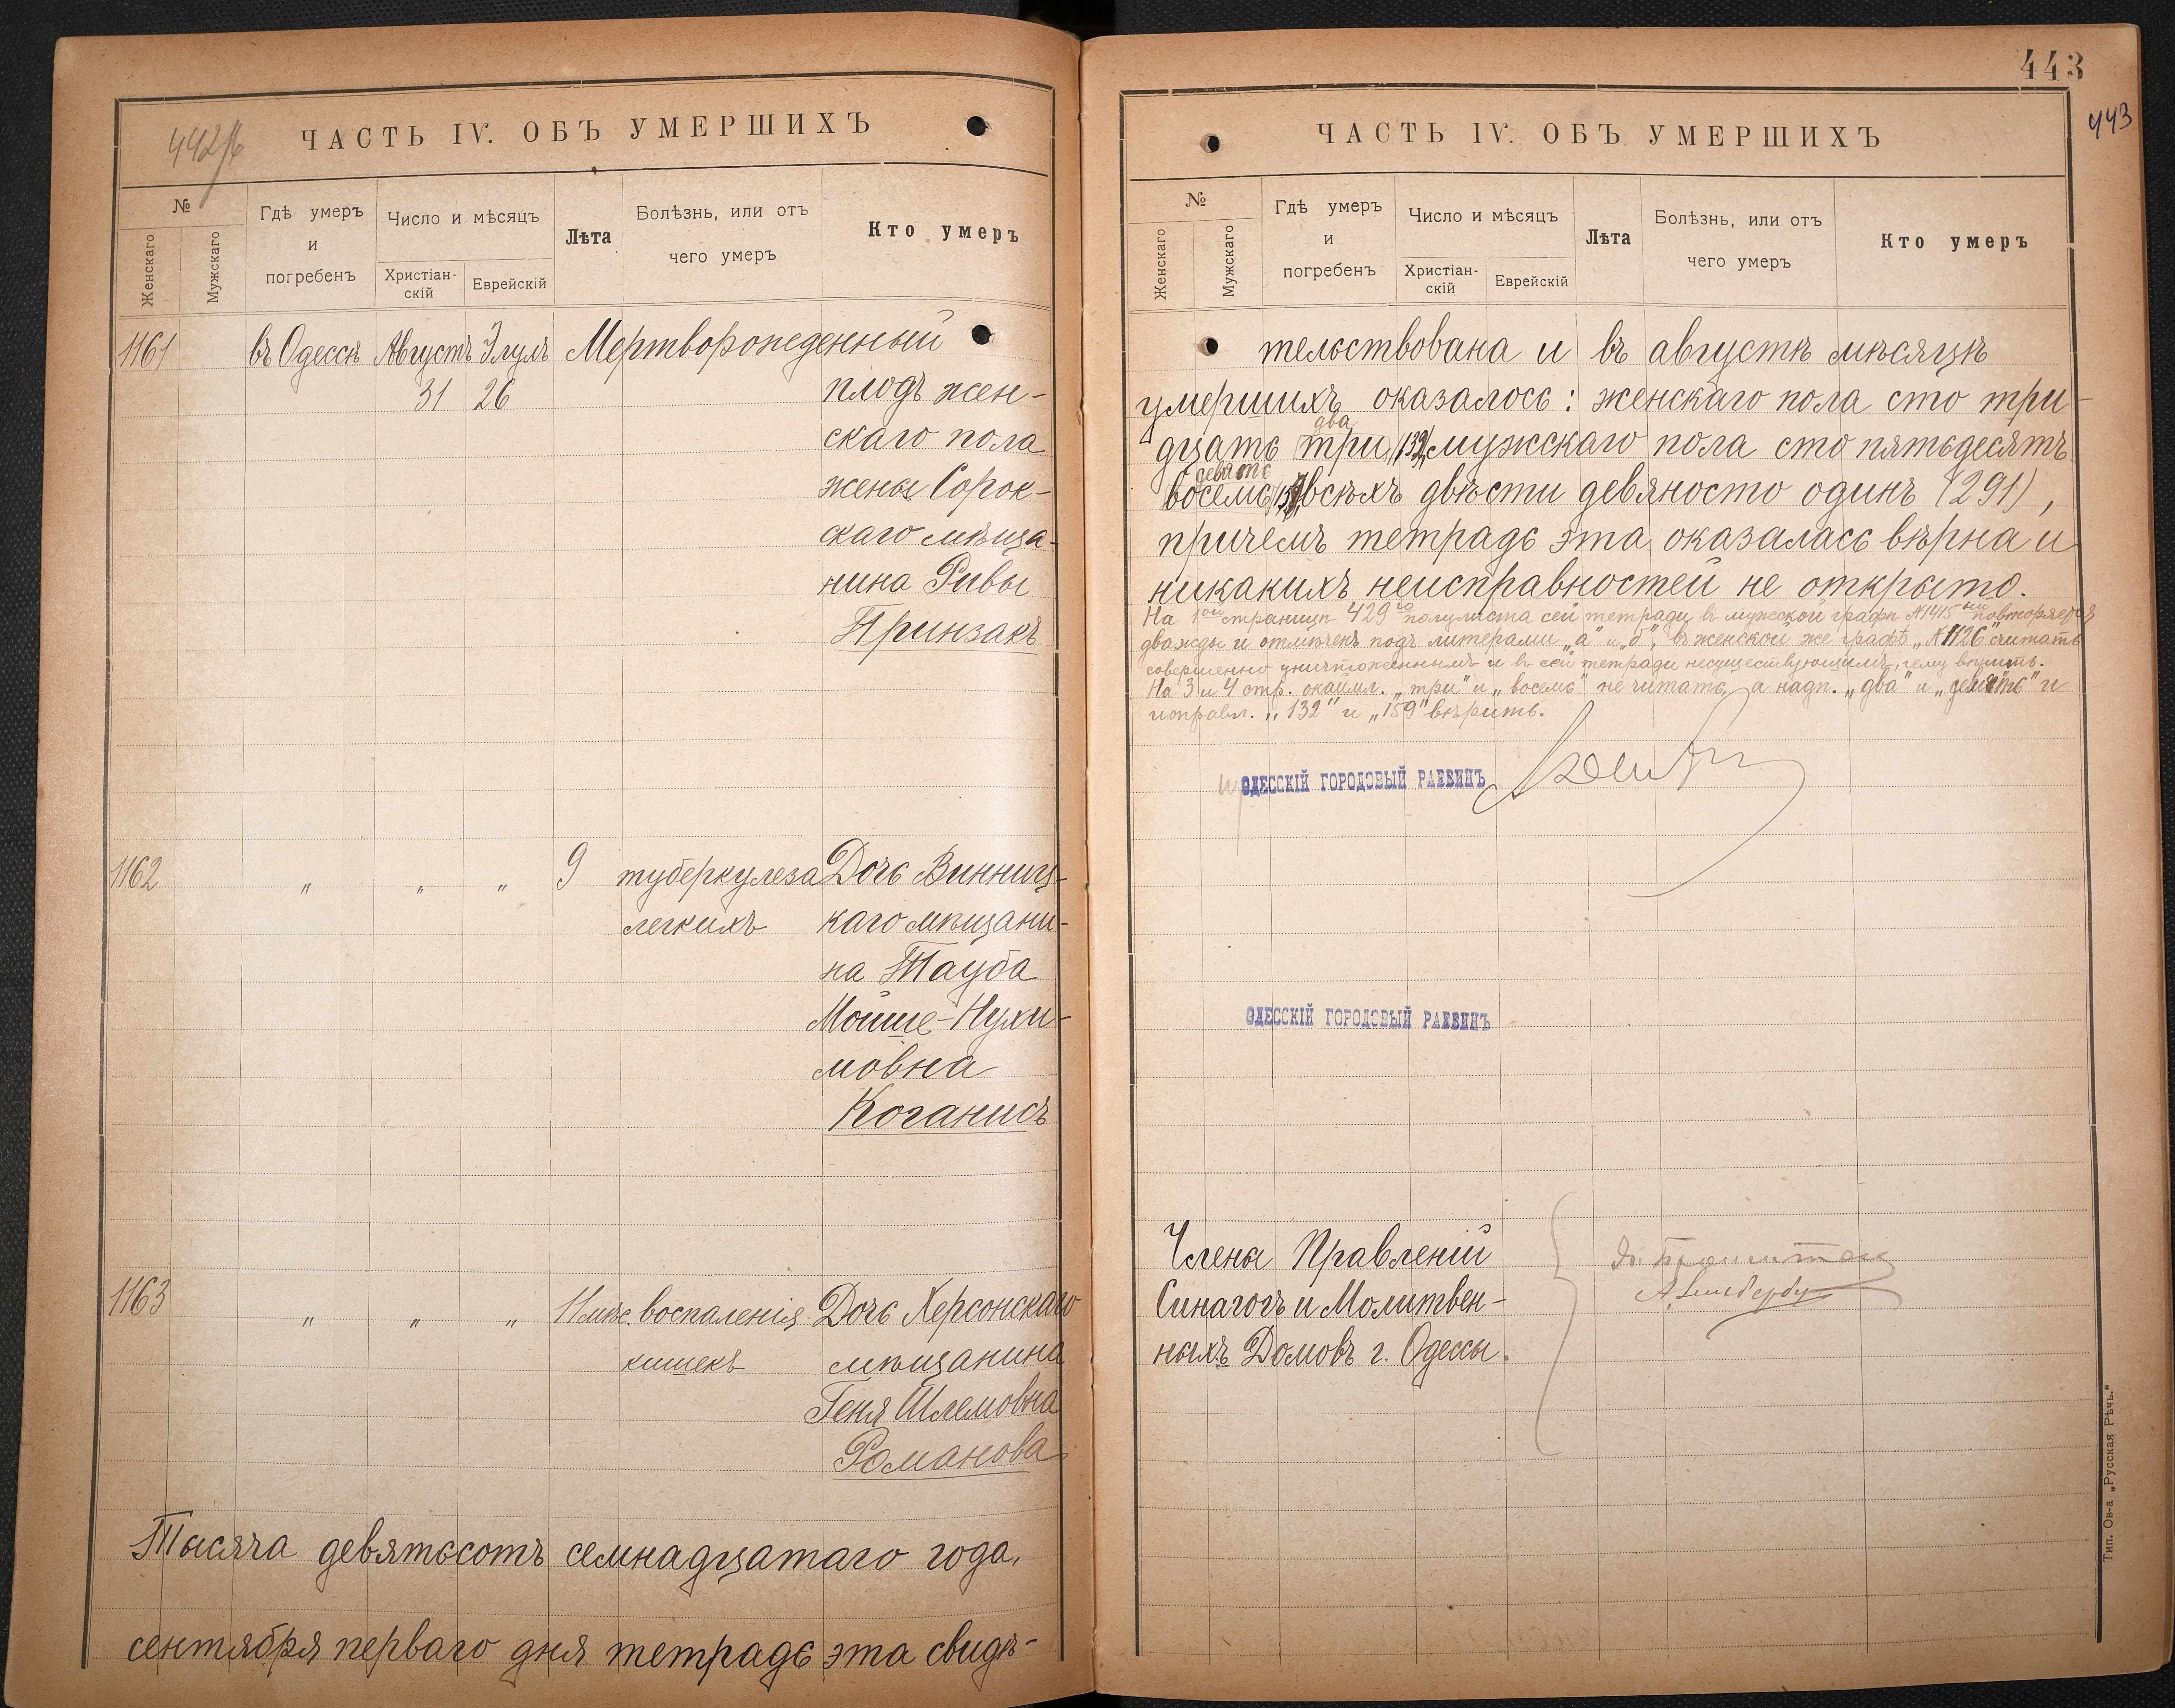 442/б
ЧАСТЬ IV. ОБЪ УМЕРШИХЪ
№
Женскаго
Мужскаго
Гдѣ умеръ
и
погребенъ
Число и мѣсяцъ
Христіан-
скій
Еврейскій
Лѣта
Болѣзнь, или отъ
чего умеръ
Кто умеръ
1161 въ Одессѣ Августъ Элулъ Мертворожденный
31 26 плодъ жен-
скаго пола
жены Сорок-
скаго мѣща-
нина Ривы
Принзакъ
1162 " " " 9 туберкулеза Дочь Винниц-
легкихъ каго мѣщани-
на Тауба
Мойше-Нухи-
мовна
Коганисъ
1163 " " " 11 мѣс. воспаленія Дочь Херсонскаго
кишекъ мѣщанина
Геня Шлемовна
Романова
Тысяча девятьсотъ семнадцатаго года,
сентября перваго дня тетрадь эта свидѣ-
443
443
ЧАСТЬ IV. ОБЪ УМЕРШИХЪ
№
Женскаго
Мужскаго
Гдѣ умеръ
и
погребенъ
Число и мѣсяцъ
Христіан-
скій
Еврейскій
Лѣта
Болѣзнь, или отъ
чего умеръ
Кто умеръ
тельствована и въ августѣ мѣсяцѣ
умершихъ оказалось: женскаго пола сто три-
два
дцать три (132) мужскаго пола сто пятьдесятъ
девять
восемь (159) всѣхъ двѣсти девяносто одинъ (291),
причемъ тетрадь эта оказалась вѣрна и
никакихъ неисправностей не открыто.
На 1ой страницѣ 429го полулиста сей тетради въ мужской графѣ №1415 повторяется
дважды и отмѣченъ подъ литерами „а" и „б", въ женской же графѣ „№1126" считать
совершенно уничтоженнымъ и въ сей тетради несуществующимъ, чему вѣрить.
На 3 и 4 стр. окаймл. „три" и „восемь" не читать, а надп. „два" и „девять" и
исправл. „132" и „159" вѣрить.
ОДЕССКІЙ ГОРОДОВЫЙ РАВВИНЪ
ОДЕССКІЙ ГОРОДОВЫЙ РАВВИНЪ
Члены Правленій
Синагогъ и Молитвен-
ныхъ Домовъ г. Одессы.
Тип. Ов-а „Русская Рѣчь."